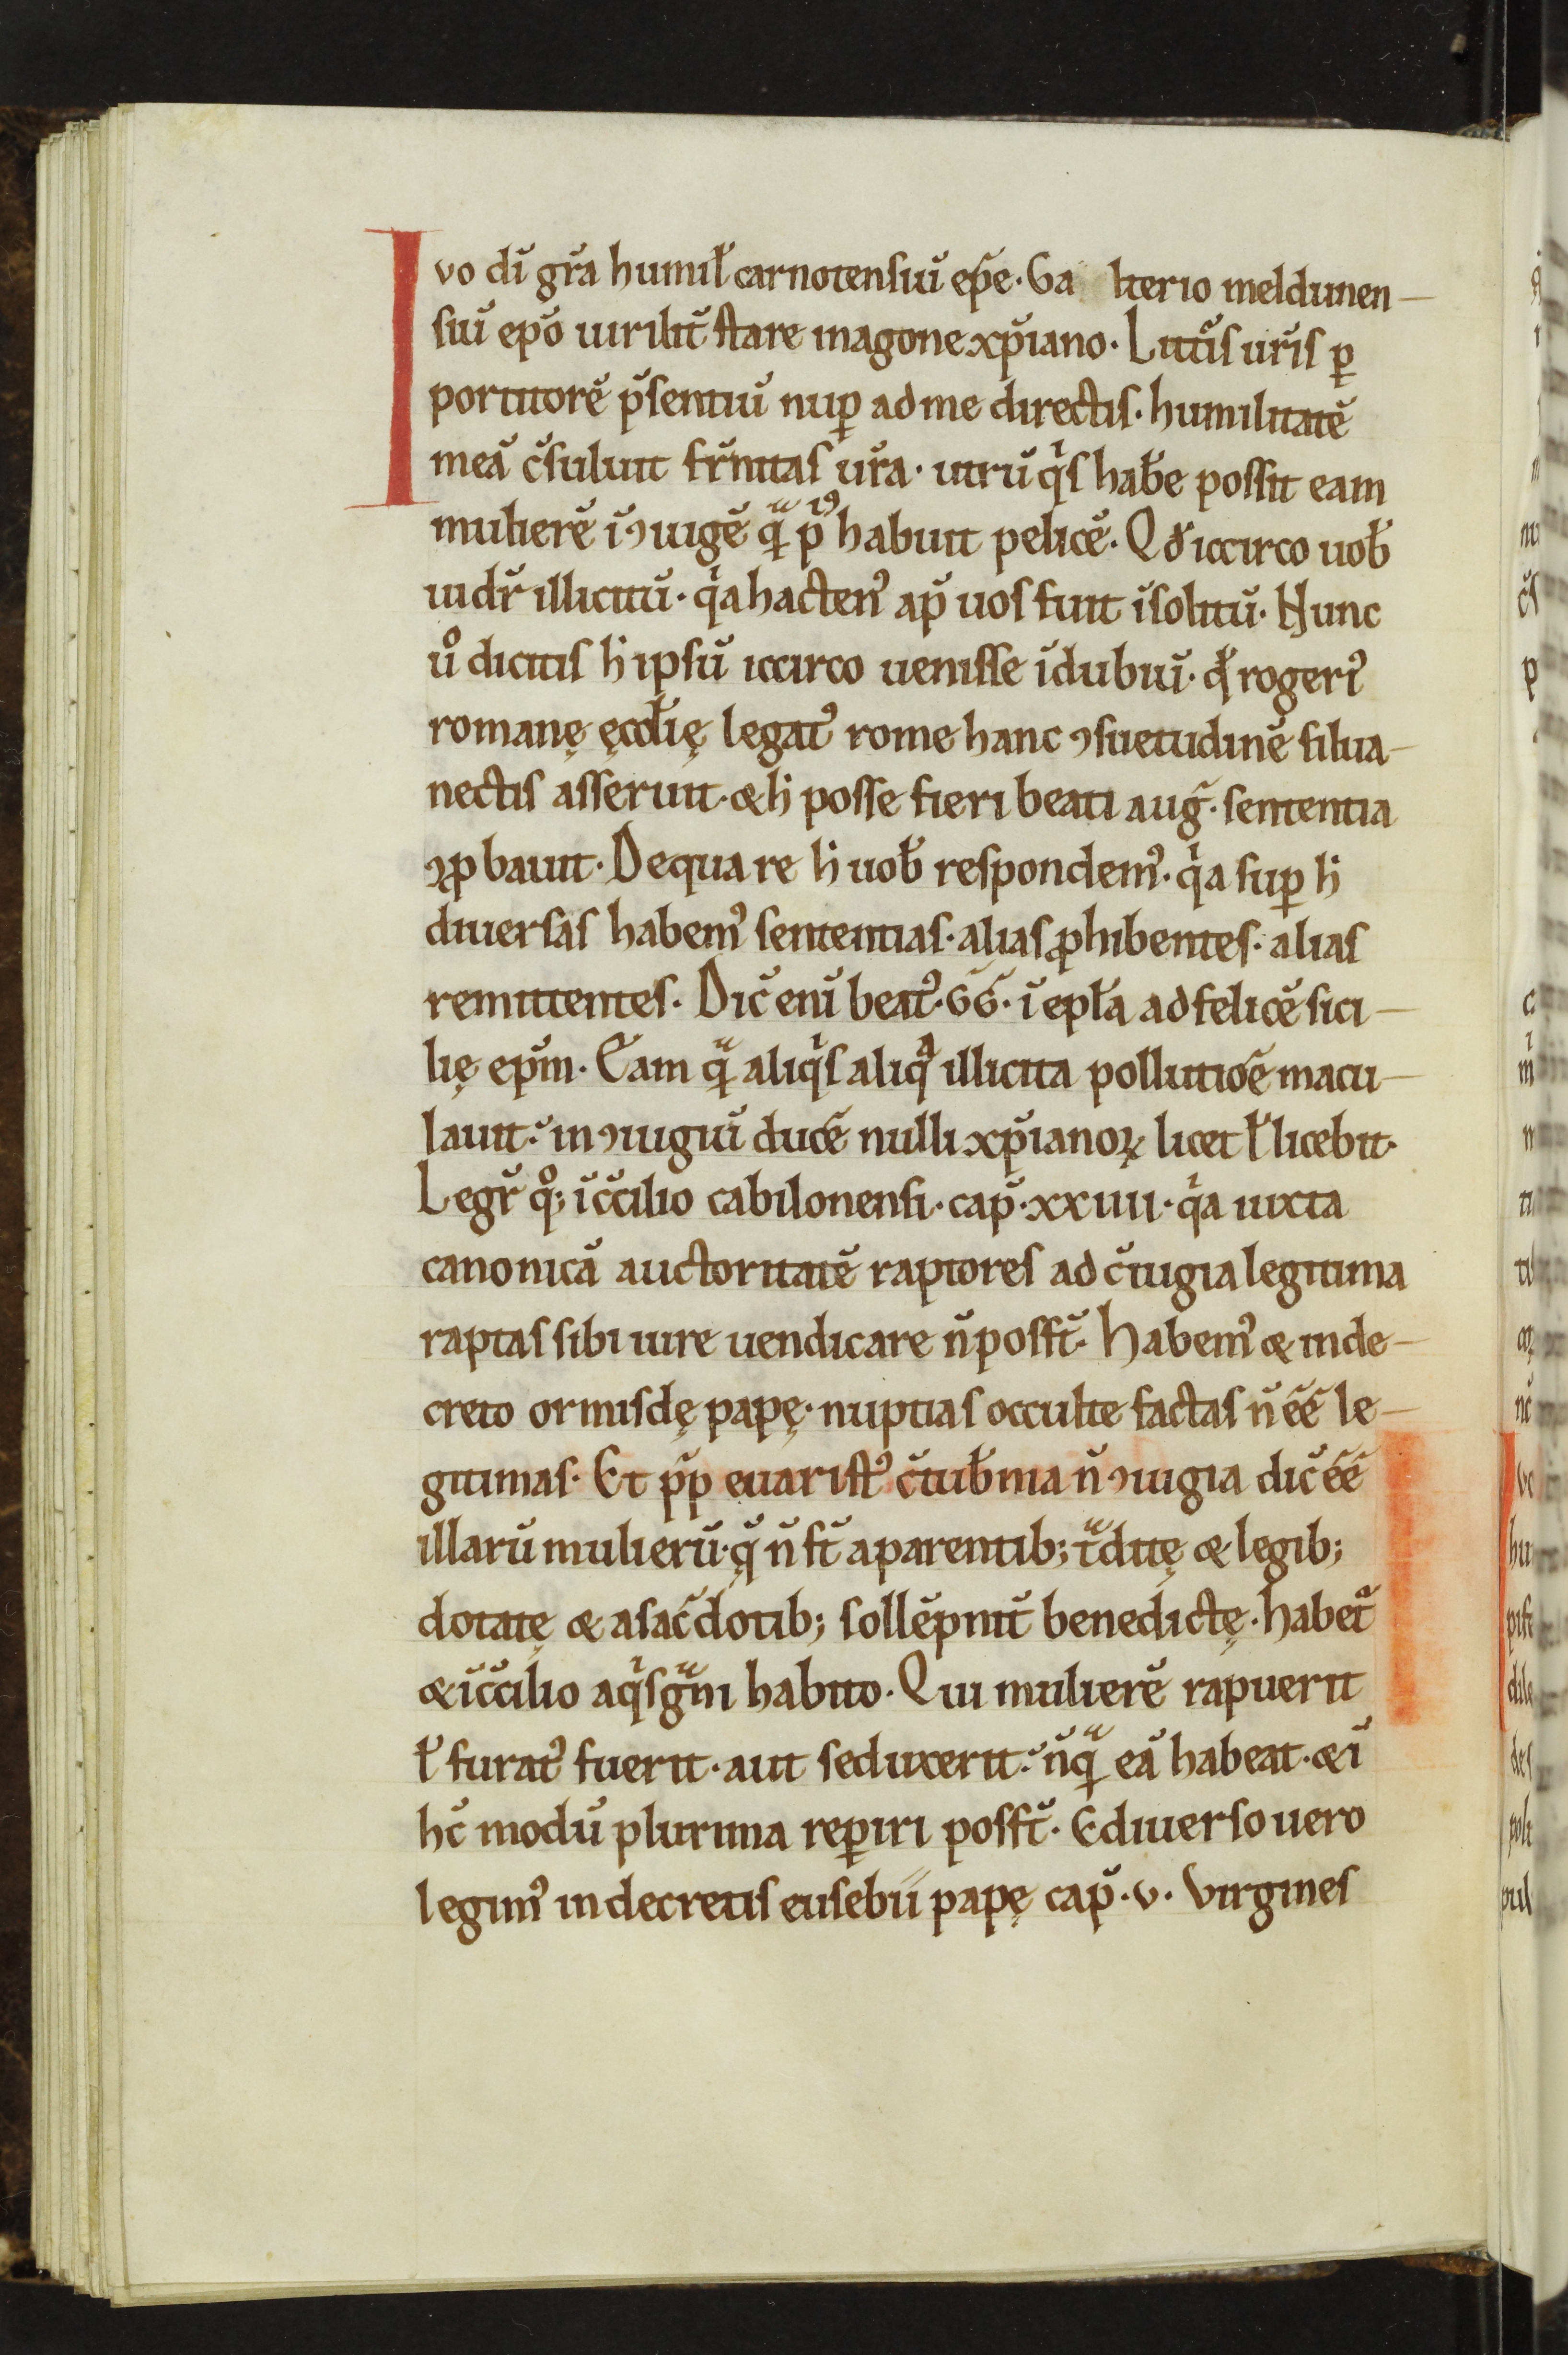 Ivo dī gr̄a humil̄ carnotensiū ep̄c. Ga lterio meldunen-
siū ep̄o uirilit̄ stare in agone xp̄iano. Litt̄is ur̄is ꝑ
portitorē p̄sentiū nuꝑ ad me directis. humilitatē
meā c̄suluit fr̄nitas ur̄a. utrū qͥs hab̄e possit eam
mulierē ī ꝯiugē q̨ͣ pͥꝰ habuit pelicē. Qd̄ iccirco uob̄
uidr̄ illicitū. qͥa hactenꝰ ap̄ uos fuit īsolitū. Nunc
uͦ dicitis h̄ ipsū iccirco uenisse ī dubiū. qd̄ rogeriꝰ
romanę ęccl̄ię legatꝰ rome hanc ꝯsuetudinē silua-
nectis asseruit. & h̄ posse fieri beati auḡ. sententia
ꝯꝓbauit. De qua re h̄ uob̄ respondemꝰ. qͥa suꝑ h̄
diuersas habemꝰ sententias. alias ꝓhibentes. alias
remittentes. Dic̄ enī beatꝰ. G̅G̅. ī epl̄a ad felicē sici-
lię ep̄m. Eam q̨ͣ aliqͥs aliqͣ illicita pollutiōe macu-
lauit. in ꝯiugiū ducē nulli xp̄ianoꝝ licet ł licebit.
Legr̄ qͦ; ī c̄cilio cabilonensi. cap̄. xxiiii. qͥa iuxta
canonicā auctoritatē raptores ad c̄iugia legitima
raptas sibi iure uendicare n̄ possт̄. Habemꝰ & in de-
creto ormisdę papę. nuptias occulte factas n̄ ēē le-
gitimas. Et p̄p euaristꝰ c̄tub̄nia n̄ ꝯiugia dic̄ ēē
illarū mulierū. q̨̄ n̄ st̄ a parentib; tͣditę & legib;
dotatę & a sac̄dotib; sollēpnit̄ benedictę. Habetͣ
& ī c̄cilio aqͥsgͣni habito. Qui mulierē rapuerit
ł furatꝰ fuerit. aut seduxerit. n̄q̨ͣ eā habeat. & ī
hc̄ modū plurima reꝑiri posst̄. E diuerso uero
legimꝰ in decretis eusebii papę cap̄. v. Virgines